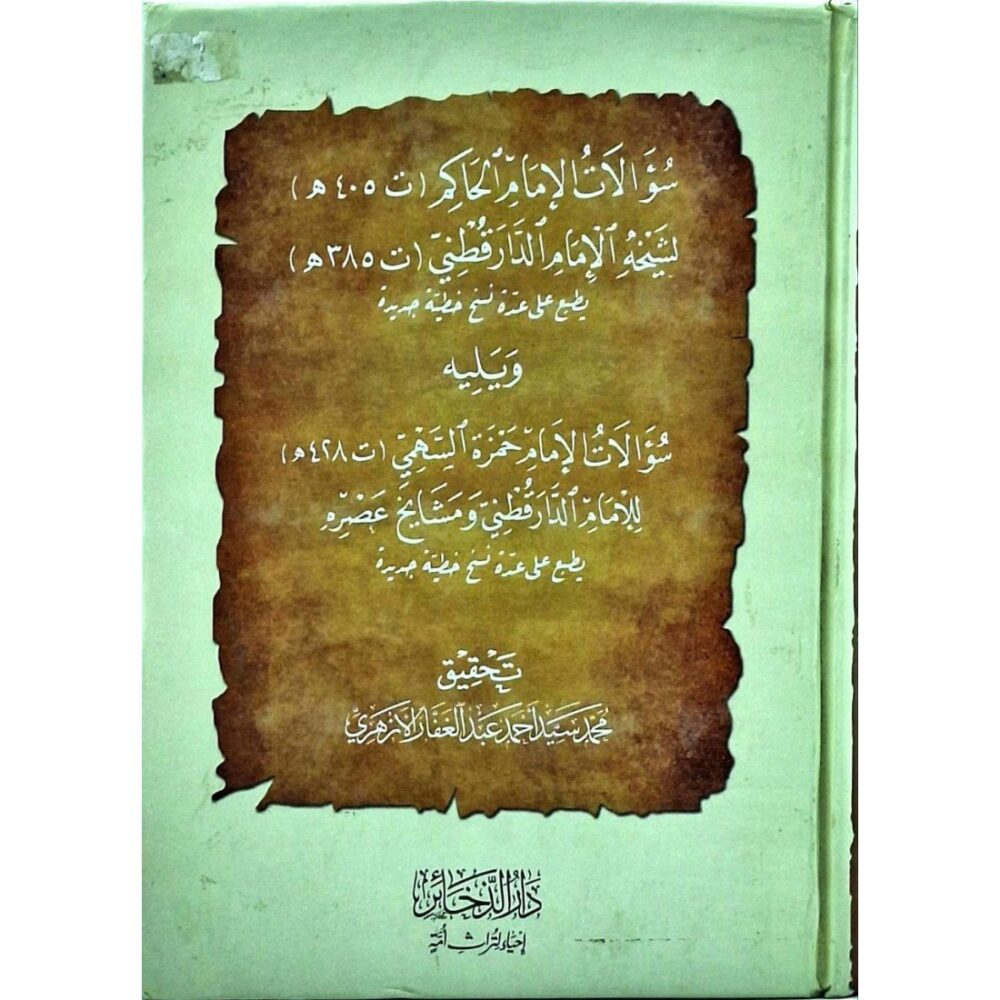 سُؤَالَاتُ الإِمَامِ الحَاكِمِ (ت ٤٠٥ هـ)
لِشَيْخِهِ الإِمَامِ الدَّارَقُطْنِيِّ (ت ٣٨٥ هـ)
يطبع على عدة نسخ خطية جديدة
وَيَلِيه
سُؤَالَاتُ الإِمَامِ حَمْزَةَ السَّهْمِيِّ (ت ٤٢٨ هـ)
لِلإِمَامِ الدَّارَقُطْنِيِّ وَمَشَايِخِ عَصْرِهِ
يطبع على عدة نسخ خطية جديدة
تَحْقِيق
مُحَمَّد سَيِّد أَحْمَد عَبْد الغَفَّار الأَزْهَرِيّ
دَارُ الذَّخَائِر
إحياء لتراث أمة